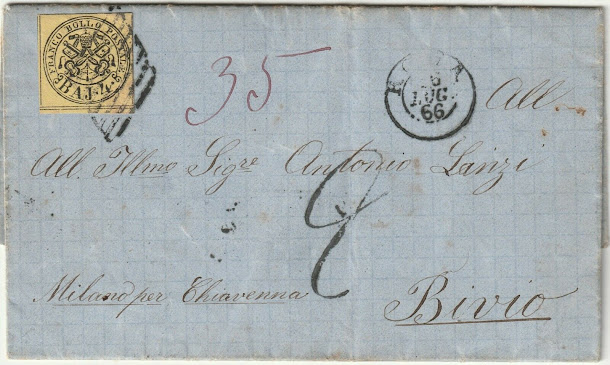 FRANCO BOLLO POSTALE
BAJ. 4
35
ROMA
6
LUG
66
All.
All. Illmo Sigre Antonio Lanzi
8
Milano per Chiavenna
Bivio